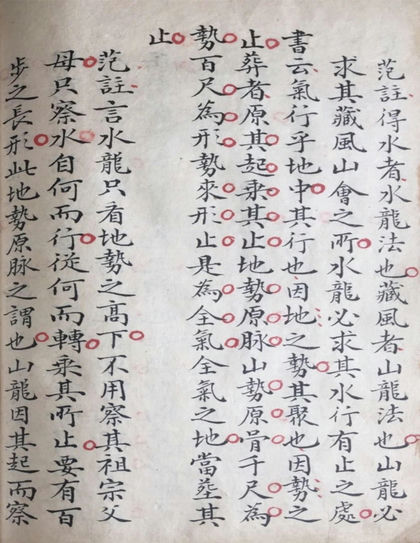 范註得水者水龍法也藏風者山龍法也山龍必
求其藏風山會之所水龍必求其水行有止之處
書云氣行乎地中其行也因地之勢其聚也因勢之
止葬者原其起乘其止地勢原脉山勢原骨千尺為
勢百尺為形勢來形止是為全氣全氣之地當葬其
止
范註言水龍只看地勢之高下不用察其祖宗父
母只察水自何而行從何而轉乘其所止要有百
步之長形此地勢原脉之謂也山龍因其起而察